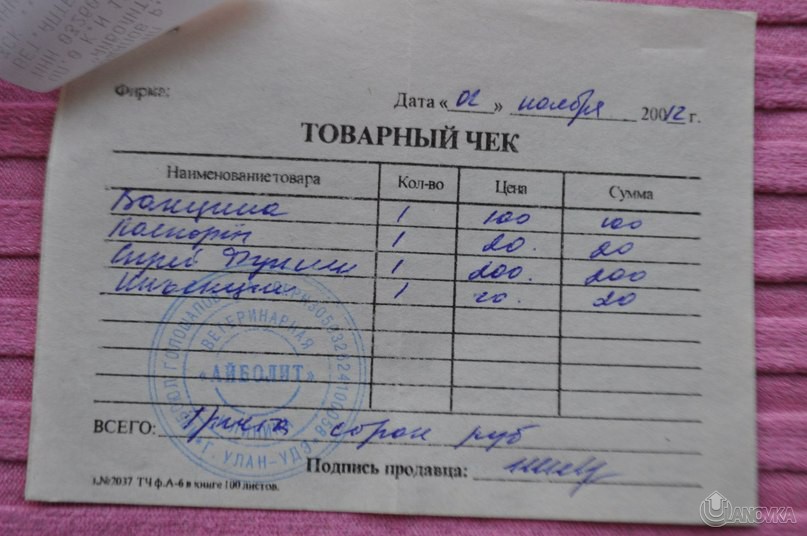 Фирма:
Дата «02» ноября 20012 г.
ТОВАРНЫЙ ЧЕК
Наименование товара Кол-во Цена Сумма
Вакцина 1 100 100
Паспорт 1 20. 20
Спрей 1 200. 200
Инъекция 1 20. 20
ВЕТЕРИНАРНАЯ
«АЙБОЛИТ»
Г. УЛАН-УДЭ
ВСЕГО: Триста сорок руб
Подпись продавца:
i.№2037 ТЧ ф.А-6 в книге 100 листов.
ULANOVKA